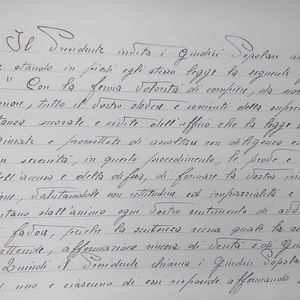 Il Presidente invita i Giudici Popolari a
e stando in piedi egli stesso legge la seguente
"Con la ferma volontà di compiere, da uo
onore, tutto il vostro dovere e coscienti della supre
tanza morale e civile dell'ufficio che la legge
giurate e promettete di ascoltare con diligenza e
on serenità, in questo procedimento, le prove e
ell'accusa e della difesa, di formare la vostra in
ione, valutandole con rettitudine ed imparzialità e
ntano dall'animo ogni vostro sentimento di avv
i favore, perché la sentenza riesca quale la so
attende, affermazione sincera di verità e di Giu
Quindi il Presidente chiama i Giudici Popola
uno e ciascuno di essi risponde affermando